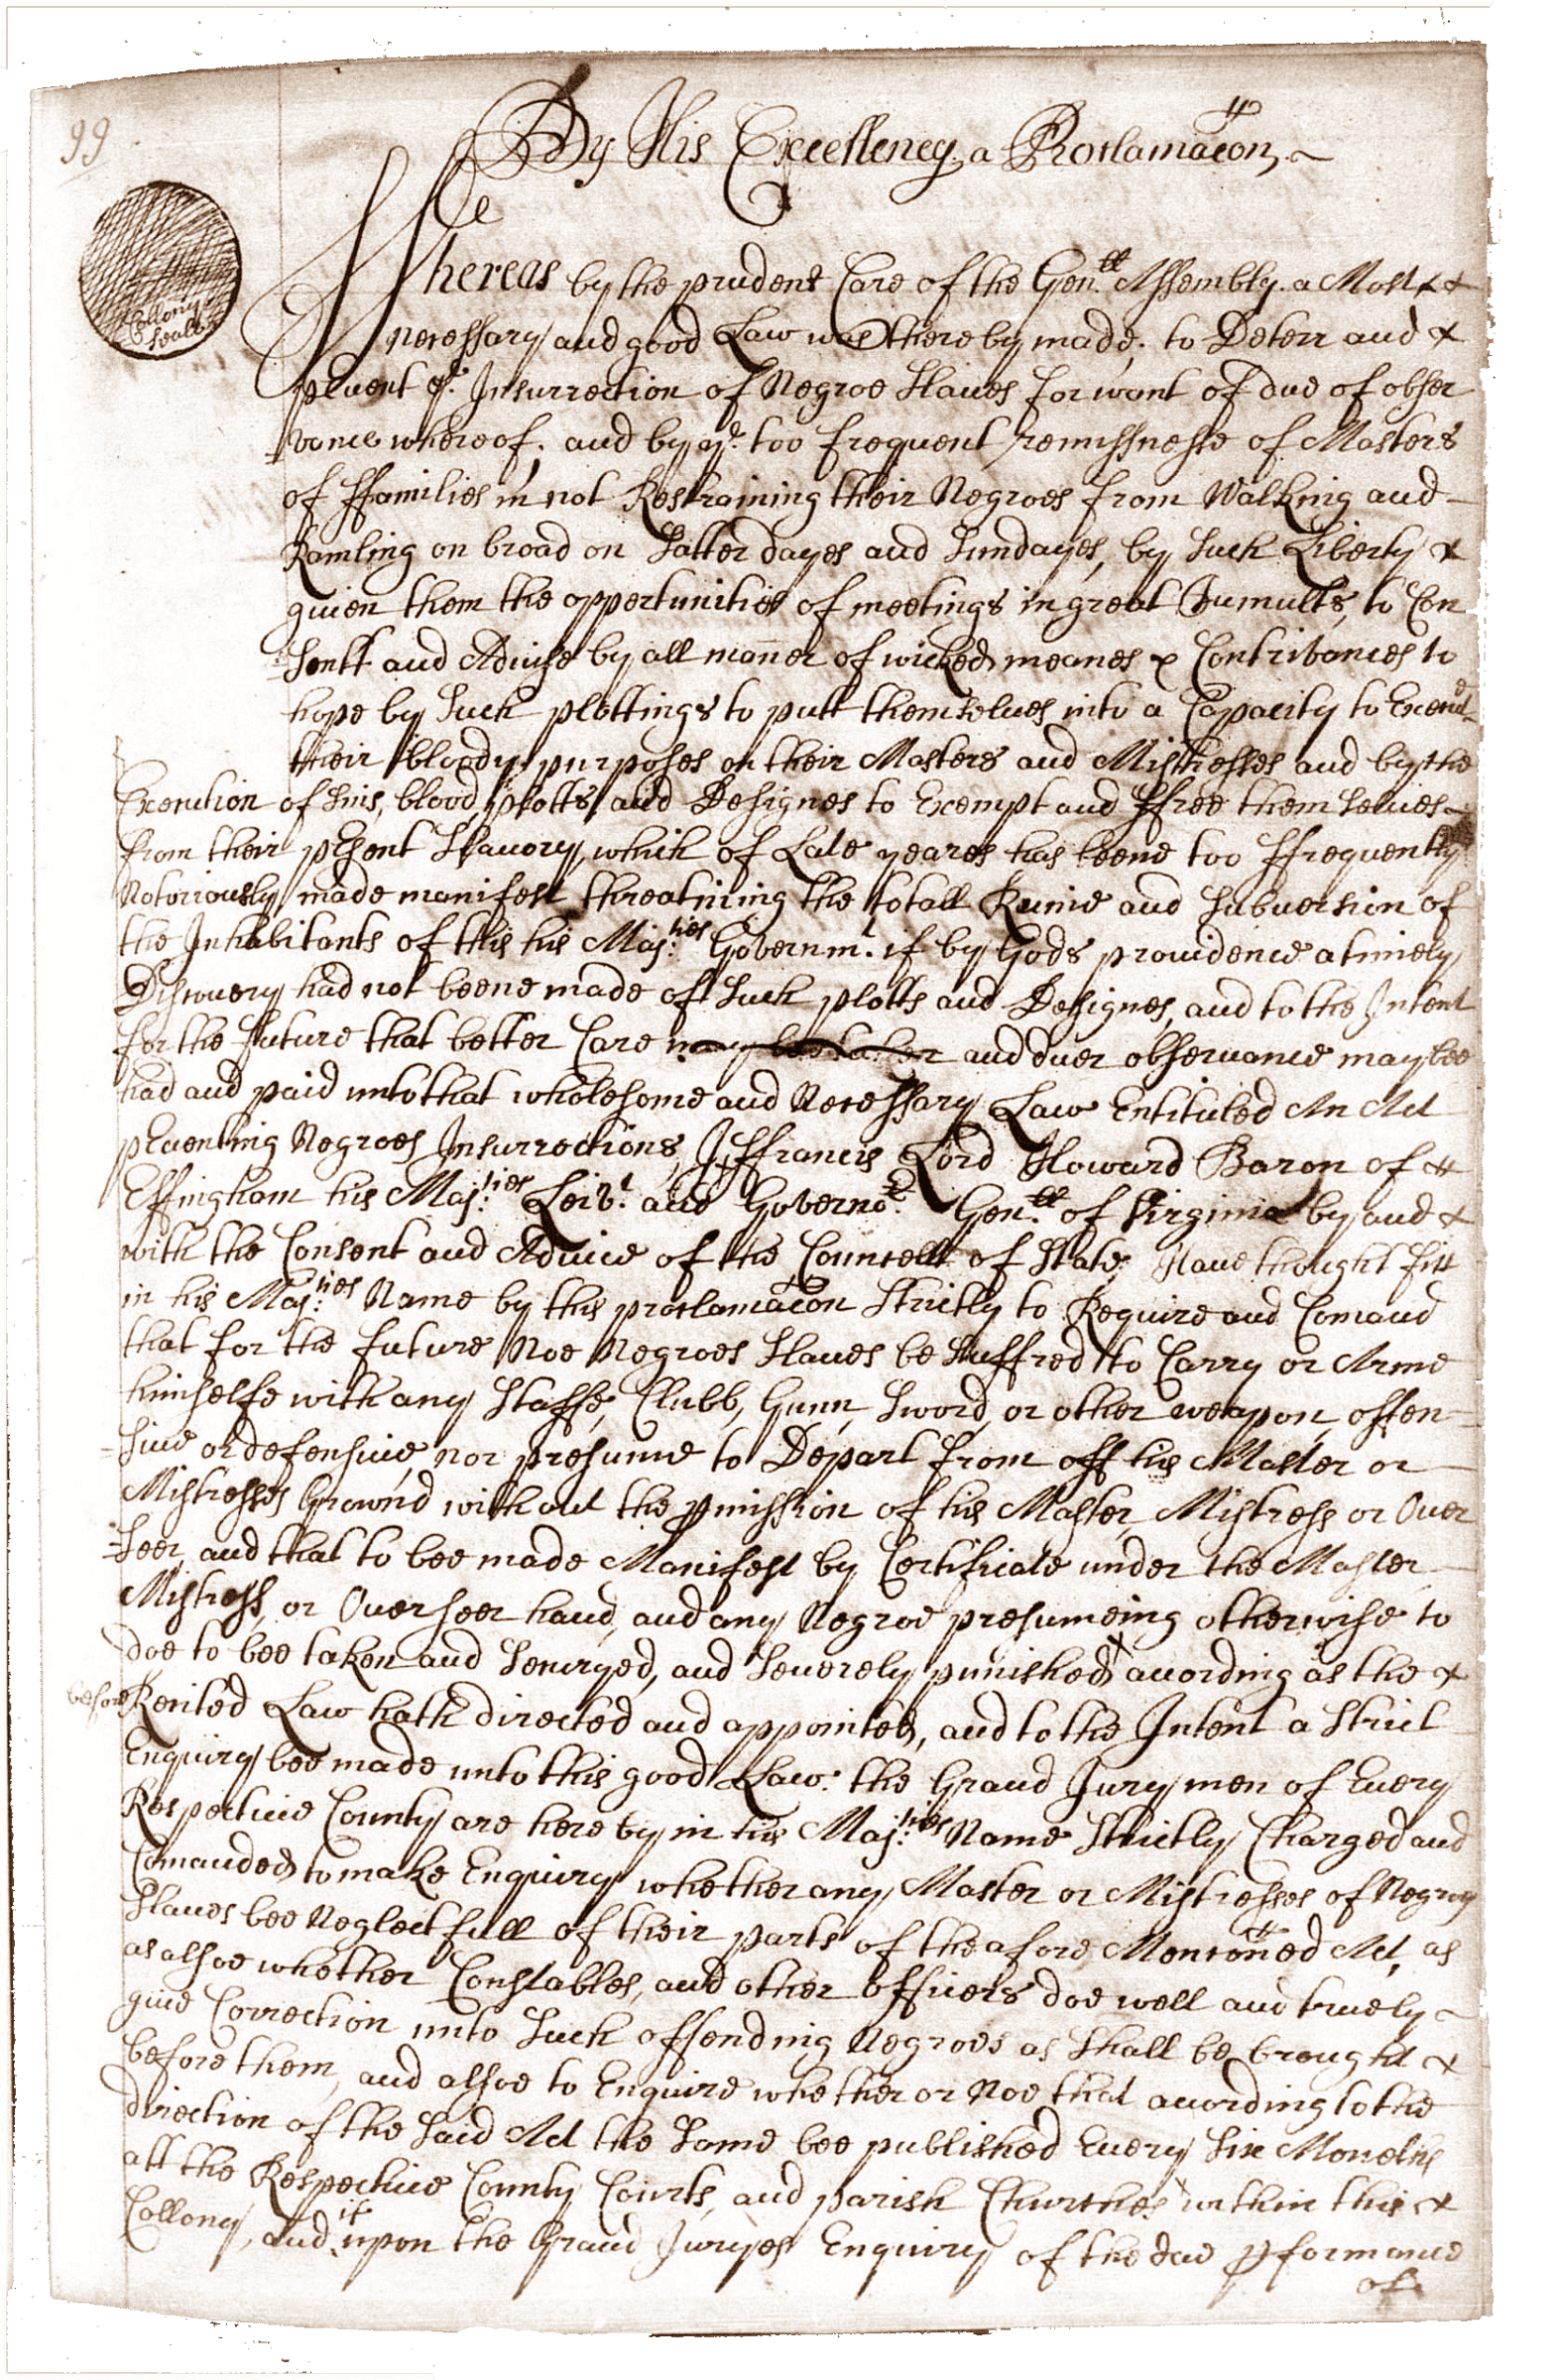 99
By His Excellency, a Proclamacon
Collony
Seall
Whereas by the prudent Care of the Gen:ll Assembly. a Most &
necessary and good Law was thereby made, to Deterr and &
pevent ye. Insurrection of Negroe Slaues for want of due of obser
vance whereof, and by ye. too frequent remissnesse of Masters
of ffamilies in not Restraining their Negroes from Walking and
Rambling on broad on Satterdayes and Sundayes, by such Liberty &
guien them the oppertunities of meetings in great Tumults, to Con
=sentt and Aduise by all maner of wicked meanes & Contribances to
hope by Such plottings to putt themselues into a Capacity to Execute
their bloody purposes on their Masters and Mistresses and by the
Execution of Suis, blood, plotts and Designes to Exempt and ffree themselues
from their psent Slauery, which of Late yeares has beene too ffrequently
Notoriously made manifest threatning the totall Ruine and Subuersion of
the Inhabitants of this his Maj:ties Governmt. if by Gods prouidence a timely
Discouery had not beene made of Such plotts and Designes, and to the Intent
for the future that better Care may bee taken and duer obseruance may bee
had and paid unto that wholesome and Necessary Law Entituled An Act
pventing Negroes Insurrections, I ffrancis Lord Howard Baron of &
Effingham his Maj:ties Leivt. and Governor. Gen:ll of Virginia by and &
with the Consent and Aduice of the Councell of State, Haue thought fitt
in his Maj:ties Name by this proclamacon Strictly to Require and Comand
that for the future Noe Negroes Slaues be Suffred to Carry or Arme
himselfe with any Staffe, Clubb, Gunn, Sword, or other weapon, offen=
=siue or defensiue, nor presume to Depart from off his Master or
Mistresses Grownd without the pmission of his Master, Mistress or Ouer
=seer, and that to bee made Manifest by Certificate under the Master
Mistress, or Ouerseer hand, and any Negroe presumeing otherwise to
doe to bee taken and Scurged, and Seuerely punished according as the &
before Recited Law hath directed and appointed, and to the Intent a Strict
Enquiry bee made unto this good Law. the Grand Jury men of Euery
Respectiue County are hereby in his Maj:ties Name Strictly Charged and
Comanded to make Enquiry whether any Master or Mistresses of Negroy
Slaues bee Neglectfull of their parts of the afore Mencon̄ed Act, as
as alsoe whether Constables, and other officers doe well and truely
giue Correction unto Such offending Negroes as Shall be brought &
before them, and alsoe to Enquire whether or Noe that according to the
direction of the Said Act the Same bee published Euery Six Moneths
att the Respectiue County Courts, and parish Churches within this &
Collony, and if upon the Grand Juryes Enquiry of the due pformance
of